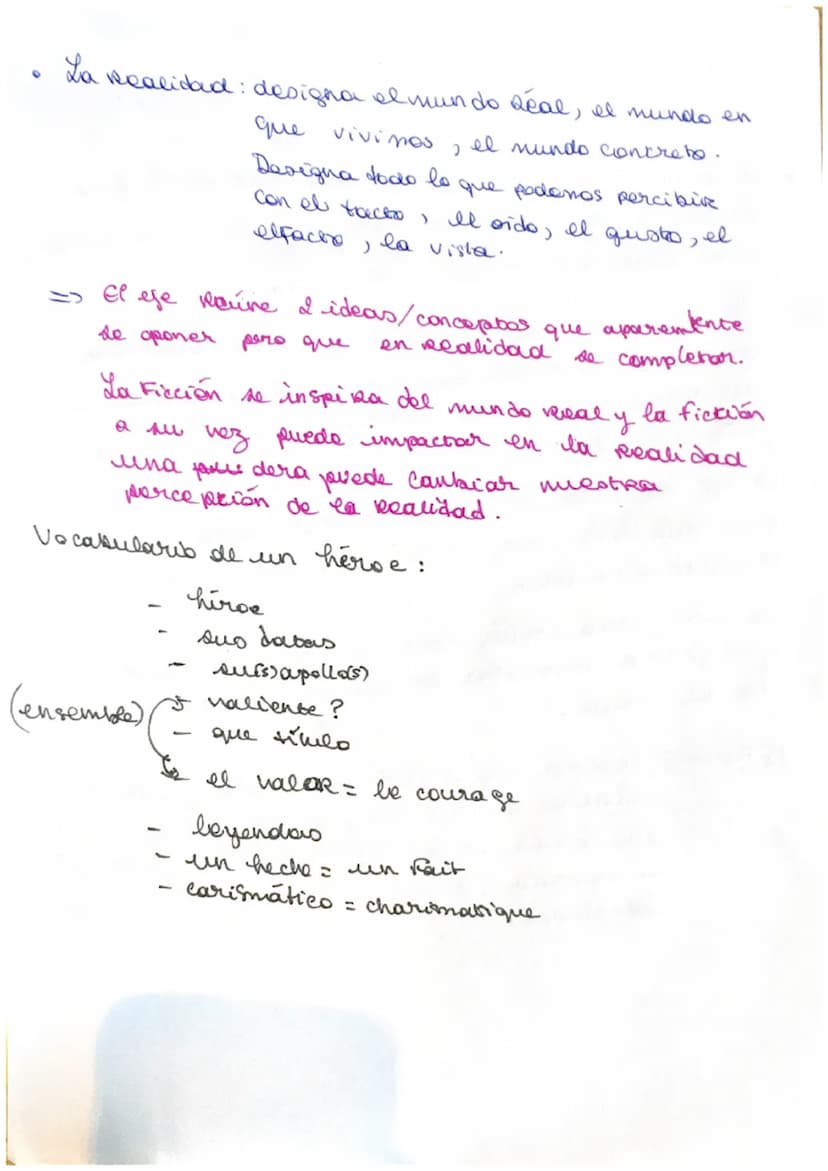 • La realidad : designa el mundo réal, el mundo en
que vivimos, el mundo concreto.
Designa todo lo que podemos percibir
con el tacto, el oído, el gusto, el
elfacto, la vista.
=> El eje reúne 2 ideas/conceptos que aparemtente
se oponer pero que en realidad se completan.
La Ficción se inspira del mundo real y la ficción
a su vez puede impactar en la realidad
una dera puede cambiar nuestra
percepción de la realidad.
Vocabulario de un héroe :
- híroe
- suo
- su(s) apollo(s)
(ensemble) valiente ?
- que
el valor = le courage
- leyendas
- un hecho = un fait
- carismático = charismatique